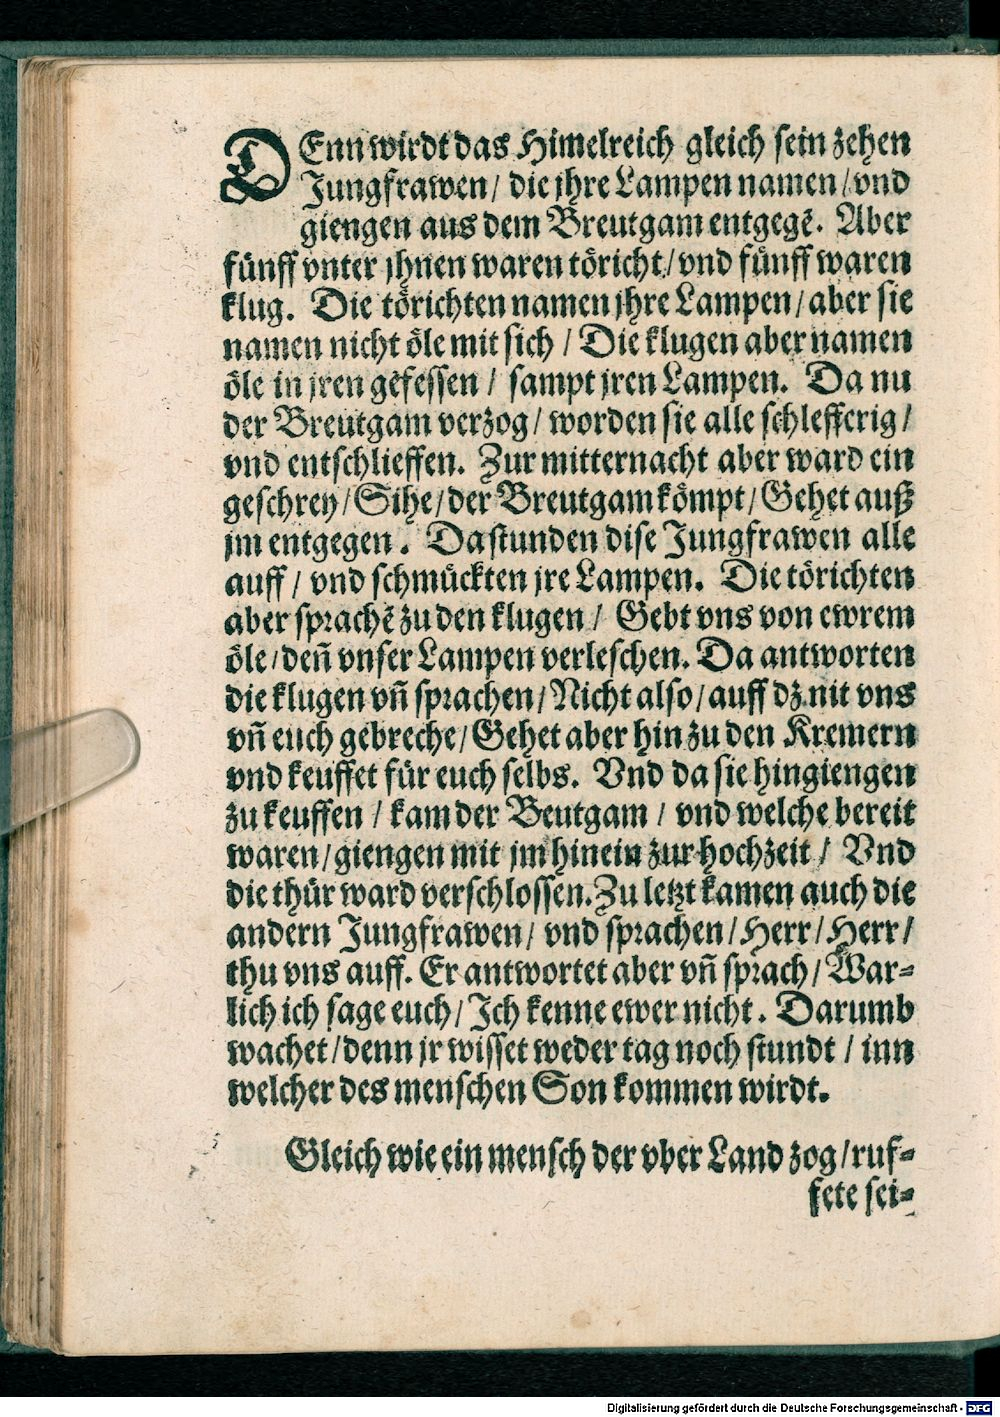 DEnn wirdt das Himelreich gleich sein zehen
Jungfrawen / die jhre Lampen namen / vnd
giengen aus dem Breutgam entgegē. Aber
fünff vnter jhnen waren töricht / vnd fünff waren
klug. Die törichten namen jhre Lampen / aber sie
namen nicht öle mit sich / Die klugen aber namen
öle in jren gefessen / sampt jren Lampen. Da nu
der Breutgam verzog / worden sie alle schlefferig /
vnd entschlieffen. Zur mitternacht aber ward ein
geschrey / Sihe / der Breutgam kömpt / Gehet auß
jm entgegen. Da stunden dise Jungfrawen alle
auff / vnd schmückten jre Lampen. Die törichten
aber sprachē zu den klugen / Gebt vns von ewrem
öle / deñ vnser Lampen verleschen. Da antworten
die klugen vñ sprachen / Nicht also / auff dz nit vns
vñ euch gebreche / Gehet aber hin zu den Kremern
vnd keuffet für euch selbs. Vnd da sie hingiengen
zu keuffen / kam der Beutgam / vnd welche bereit
waren / giengen mit jm hinein zur hochzeit / Vnd
die thür ward verschlossen. Zu letzt kamen auch die
andern Jungfrawen / vnd sprachen / Herr / Herr /
thu vns auff. Er antwortet aber vñ sprach / War-
lich ich sage euch / Ich kenne ewer nicht. Darumb
wachet / denn jr wisset weder tag noch stundt / inn
welcher des menschen Son kommen wirdt.
Gleich wie ein mensch der vber Land zog / ruf-
fete sei-
Digitalisierung gefördert durch die Deutsche Forschungsgemeinschaft - DFG